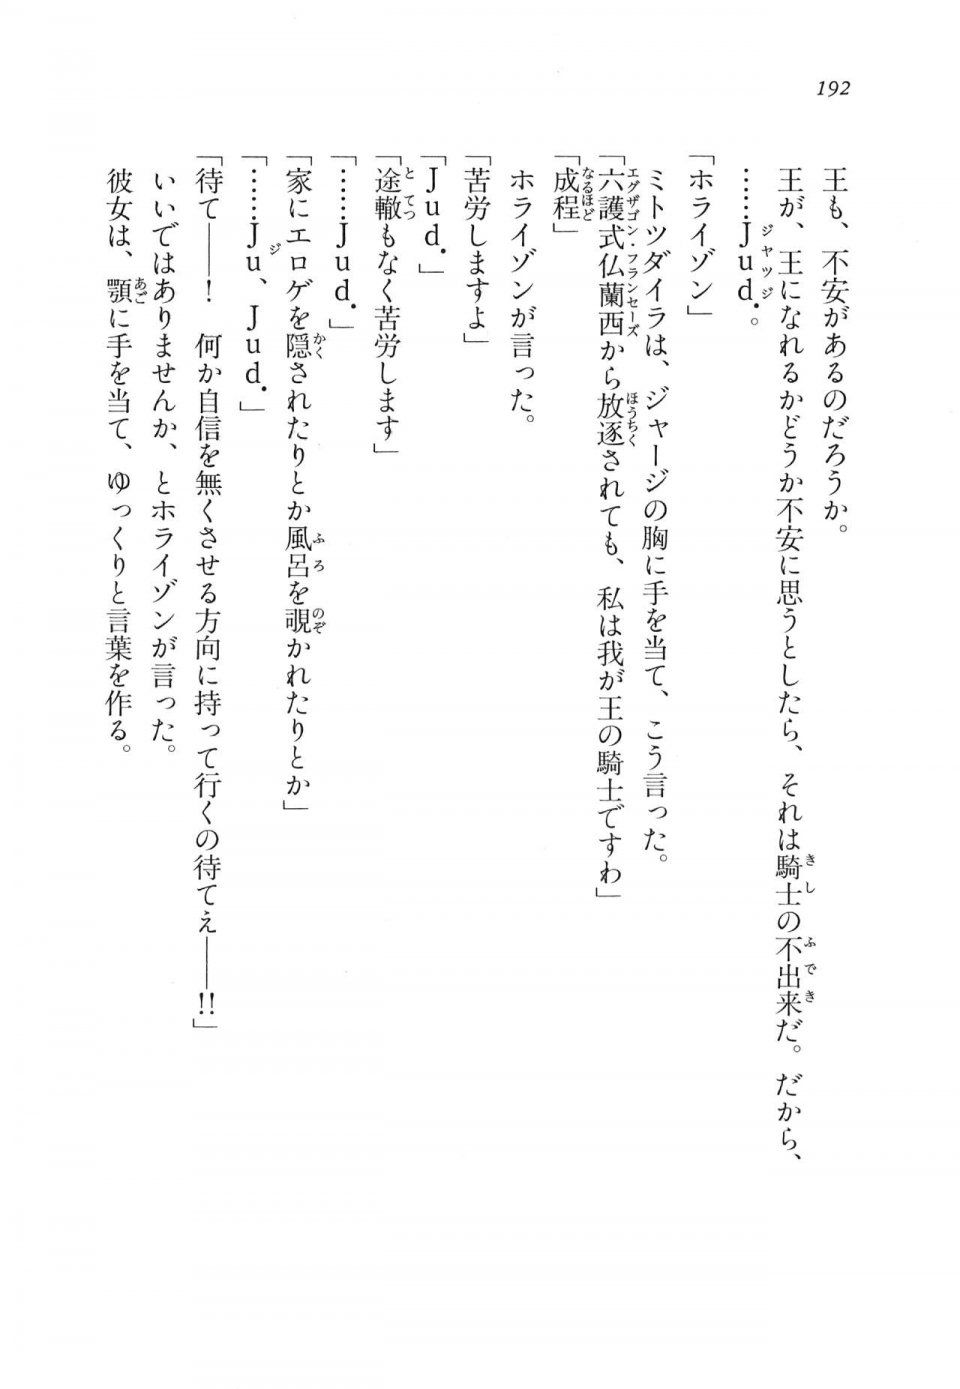 192
王も、不安があるのだろうか。
王が、王になれるかどうか不安に思うとしたら、それは騎士の不出来だ。だから、
……Jud.。
「ホライゾン」
ミトツダイラは、ジャージの胸に手を当て、こう言った。
「六護式仏蘭西から放逐されても、私は我が王の騎士ですわ」
「成程」
ホライゾンが言った。
「苦労しますよ」
「Jud.」
「途轍もなく苦労します」
「……Jud.」
「家にエロゲを隠されたりとか風呂を覗かれたりとか」
「……Ju、Jud.」
「待て——！　何か自信を無くさせる方向に持って行くの待てぇ——!!」
いいではありませんか、とホライゾンが言った。
彼女は、顎に手を当て、ゆっくりと言葉を作る。